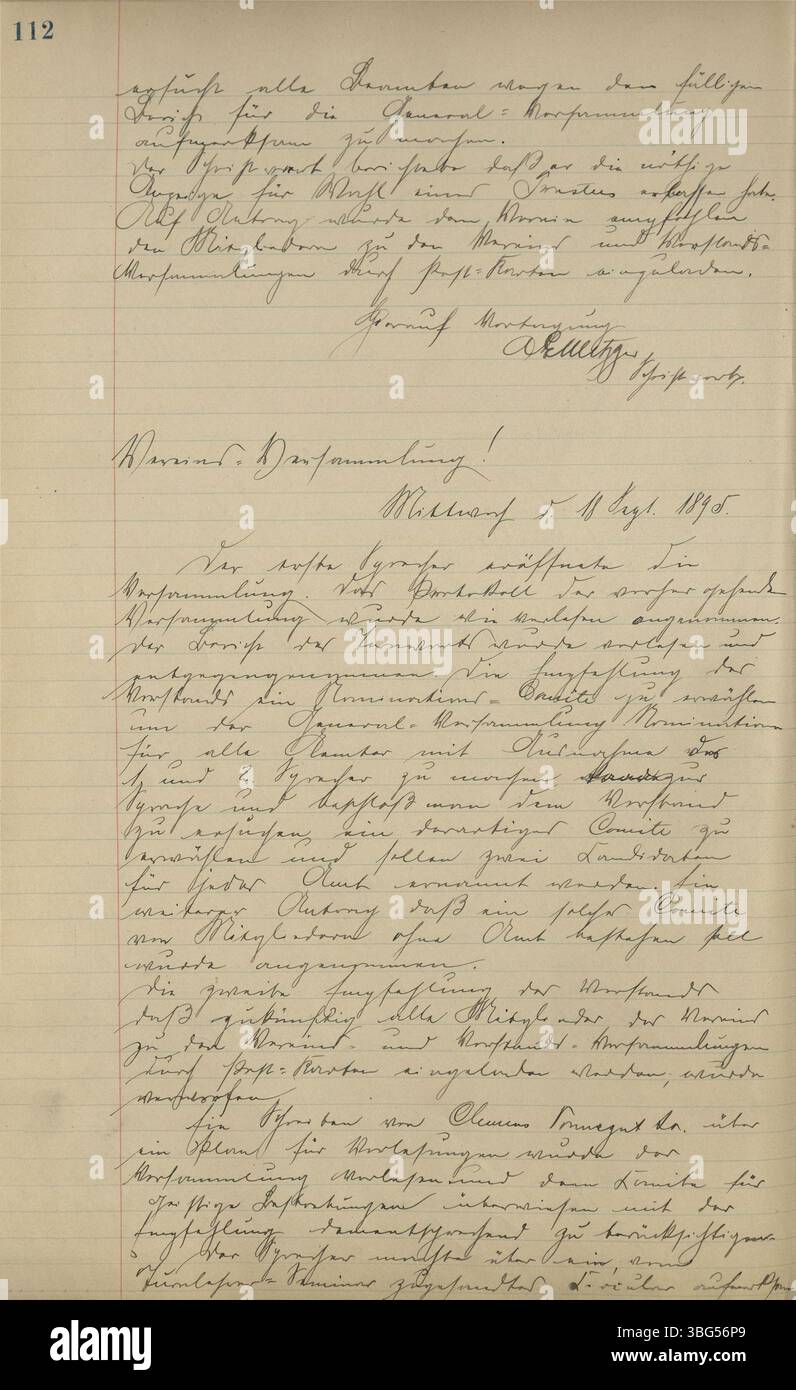 112
ersucht alle Beamten wegen dem fälligen
Bericht für die General=Versammlung
aufmerksam zu machen.
Der Schriftwart berichtete daß er die nöthige
Anzeige für Wahl eines Trustees erlassen habe.
Auf Antrag wurde dem Verein empfohlen
den Mitgliedern zu den Vereins und Vorstands=
Versammlungen durch Post=Karten einzuladen.
Hierauf Vertagung
Metzger
Schriftwart.
Vereins=Versammlung!
Mittwoch d. 18 Sept. 1895.
Der erste Sprecher eröffnete die
Versammlung. Das Protokoll der vorhergehenden
Versammlung wurde wie verlesen angenommen.
Der Bericht des Turnwarts wurde verlesen und
entgegengenommen. Die Empfehlung des
Vorstands ein Nominations=Comite zu erwählen
um der General=Versammlung Nominationen
für alle Aemter mit Ausnahme des
1. und 2. Sprecher zu machen zur
Sprache und beschloß man dem Vorstand
zu ersuchen ein derartiges Comite zu
erwählen und sollen zwei Candidaten
für jedes Amt ernannt werden. Ein
weiterer Antrag daß ein solches Comite
von Mitgliedern ohne Amt bestehen soll
wurde angenommen.
Die zweite Empfehlung des Vorstands
daß zukünftig alle Mitglieder des Vereins
zu den Vereins- und Vorstands=Versammlungen
durch Post=Karten eingeladen werden, wurde
verworfen.
Ein Schreiben von Clemens Vonnegut Sr. über
ein Plan für Vorlesungen wurde der
Versammlung verlesen und dem Comite für
geistige Bestrebungen überwiesen mit der
Empfehlung dementsprechend zu berücksichtigen.
Der Sprecher machte über ein, vom
Turnlehrer=Seminar zugesandtes Circular aufmerksam
alamy
Image ID: 3BG56P9
www.alamy.com